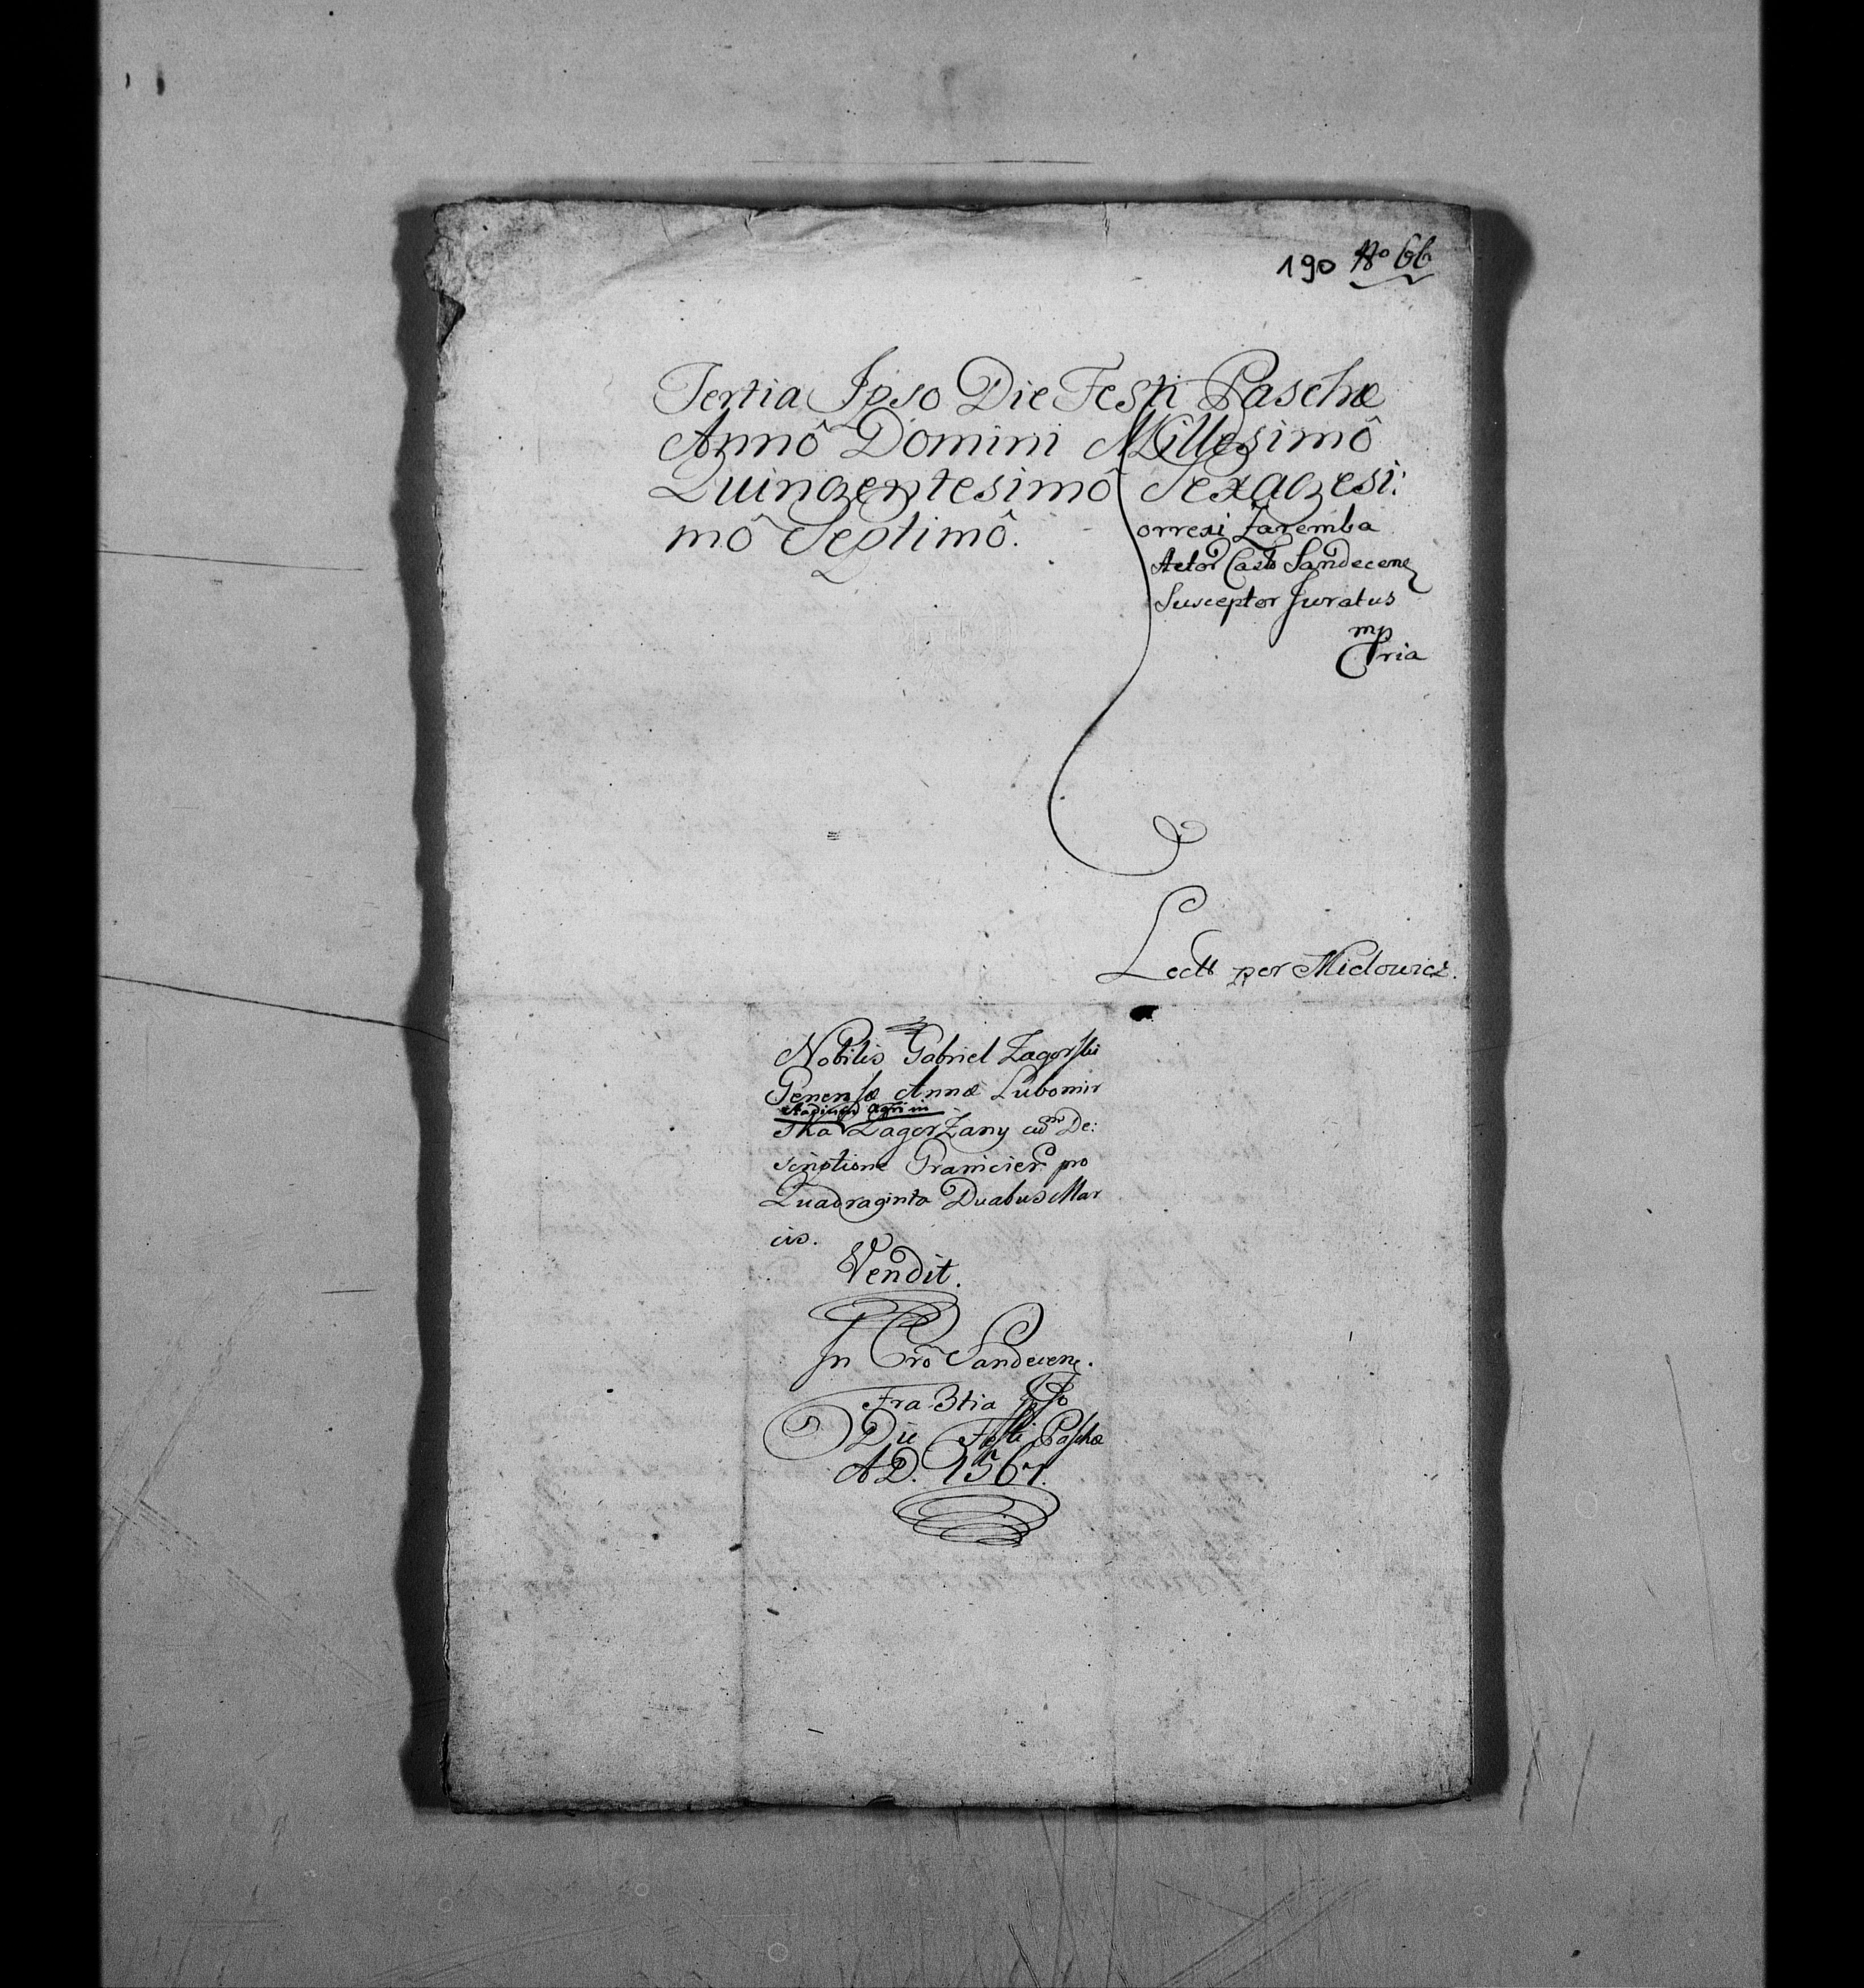 190 No 66
Tertia Ipso Die Festi Paschæ
Annô Domini Millesimô
Quingentesimô Sexagesi:
mô Septimô.
Correxi Zaremba
Castr Sandecens
Susceptor Juratus
mp
pria
Lectt per Midowicz.
Nobilis Gabriel Zagorski
Generosæ Annæ Lubomir
agri in
ska Zagorzany cum De:
scriptione Granicier pro
Quadraginta Duabus Mar
cis.
Vendit.
In Cro Sandecen.
Fra 3tia Ipso
Die Festi Paschæ
AD. 1567.